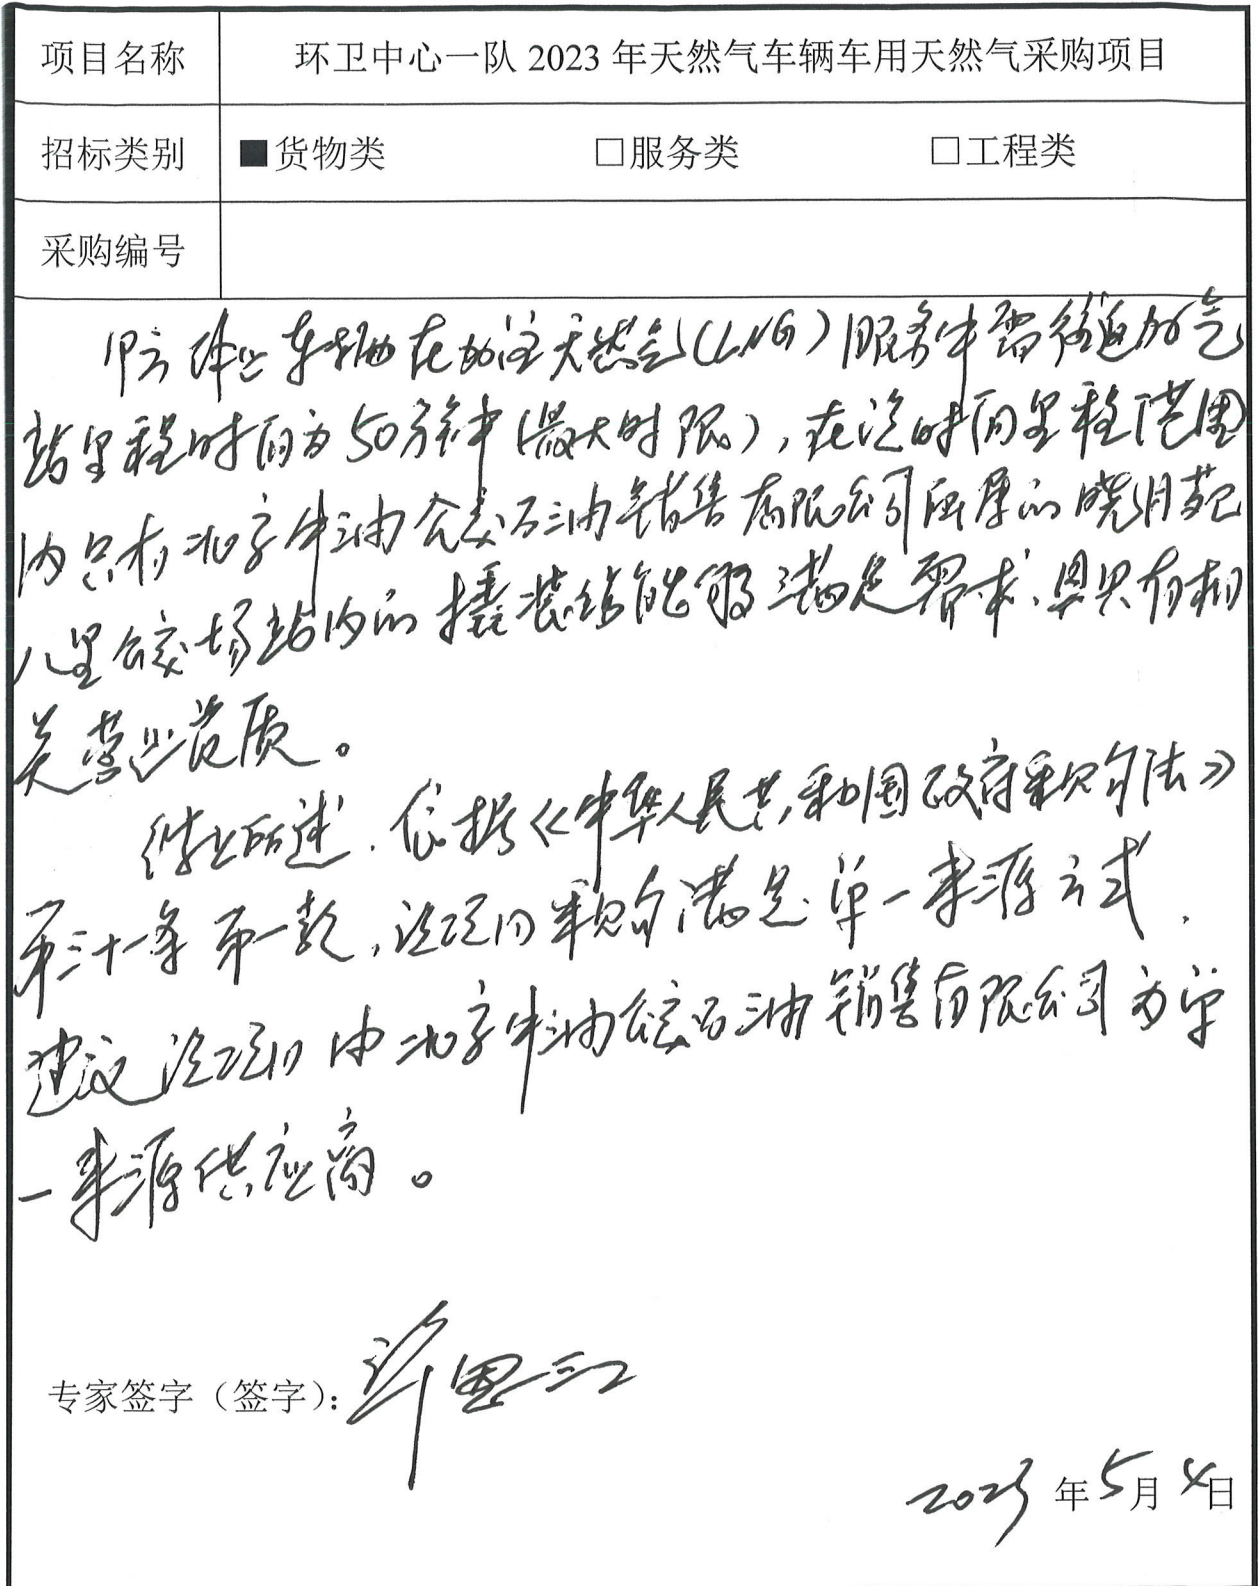 项目名称 环卫中心一队 2023 年天然气车辆车用天然气采购项目
招标类别 ■货物类 □服务类 □工程类
采购编号
甲方作业车辆在加注天然气(LNG)服务中需往返加气
站里程时间为50分钟(最大时限),在该时间里程范围
内只有北京中油公交石油销售有限公司所属的晓月苑
八里公交场站内的撬装站能够满足需求,且具有相
关营业资质。
综上所述,依据《中华人民共和国政府采购法》
第三十一条第一款,该项目采购满足单一来源方式,
建议该项目由北京中油公交石油销售有限公司为单
一来源供应商。
专家签字(签字):许
2023 年 5 月 4 日